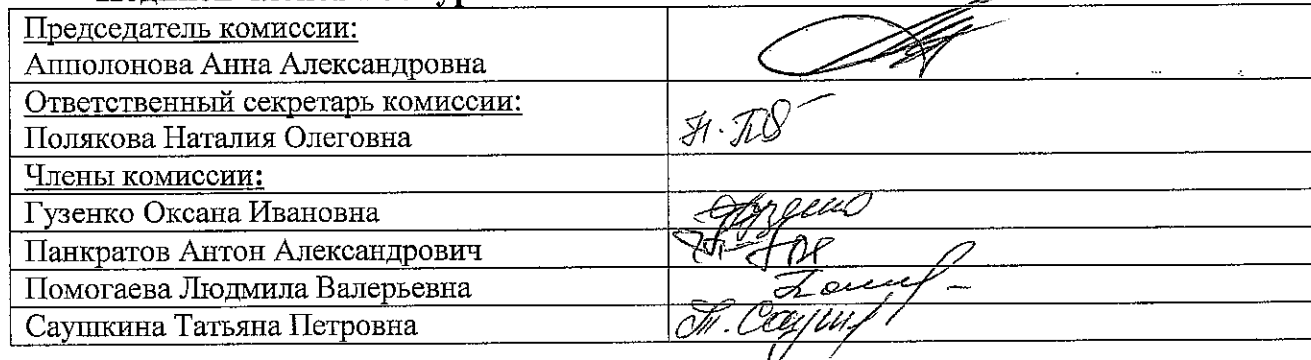 Председатель комиссии:
Апполонова Анна Александровна
Ответственный секретарь комиссии:
Полякова Наталия Олеговна
Члены комиссии:
Гузенко Оксана Ивановна
Панкратов Антон Александрович
Помогаева Людмила Валерьевна
Саушкина Татьяна Петровна